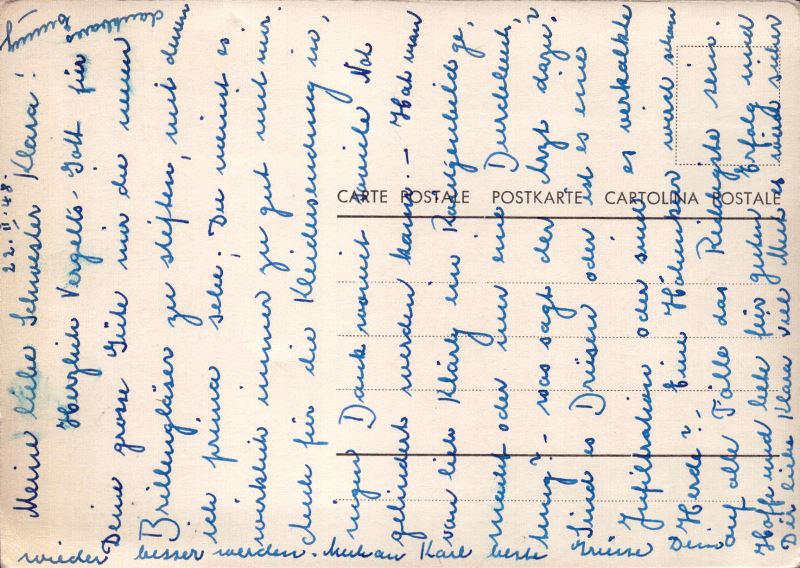 22.II.48.
Meine liebe Schwester Klara!
Herzlich Vergelts-Gott für
Deine grosse Güte mir die neuen
Brillengläser zu stiften, mit denen
ich prima sehe. Du meinst es
wirklich immer zu gut mit mir.
Auch für die Kleidersendung in,
nigen Dank womit soviele Not
gelindert werden kann. - Hat man
von lieb Klärly ein Röntgenbild ge,
macht oder nur eine Durchleuch,
tung? - was sagt der Arzt dazu?
Sind es Drüsen oder ist es eine
Infiltration oder sind es verkalkte
Herde? - Eine Höhenkur wird schon
auf alle Fälle das Richtigste sein.
Hoffe und bete für guten Erfolg und
Dir liebe Klara viel Mut es wird sicher
wieder besser werden. Auch an Karl beste Grüsse Dein
dankbares
CARTE POSTALE POSTKARTE CARTOLINA POSTALE